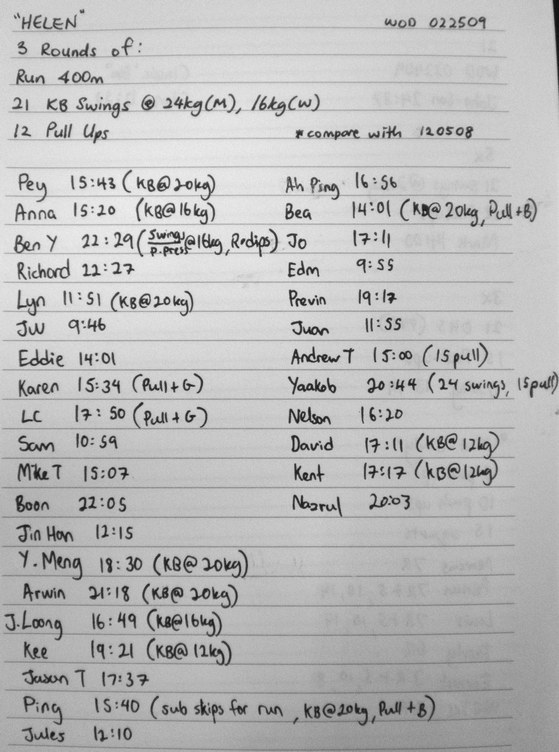 "HELEN" WOD 022509
3 Rounds of:
Run 400m
21 KB Swings @ 24kg(M), 16kg(W)
12 Pull Ups *compare with 120508
Pey 15:43 (KB@20kg)
Anna 15:20 (KB@16kg)
Ben Y 22:29 (Swings/P.Press @16kg, Rodips)
Richard 22:27
Lyn 11:51 (KB@20kg)
JW 9:46
Eddie 14:01
Karen 15:34 (Pull+G)
LC 17:50 (Pull+G)
Sam 10:59
Mike T 15:07
Boon 22:05
Jin Han 12:15
Y. Meng 18:30 (KB@20kg)
Arwin 21:18 (KB@20kg)
J.Loong 16:49 (KB@16kg)
Kee 19:21 (KB@12kg)
Jason T 17:37
Ping 15:40 (sub skips for run, KB@20kg, Pull+B)
Jules 12:10
Ah Ping 16:56
Bea 14:01 (KB@20kg, Pull+B)
Jo 17:11
Edm 9:55
Previn 19:17
Juan 11:55
Andrew T 15:00 (15pull)
Yaakob 20:44 (24 swings, 15pull)
Nelson 16:20
David 17:11 (KB@12kg)
Kent 17:17 (KB@12kg)
Nazrul 20:03